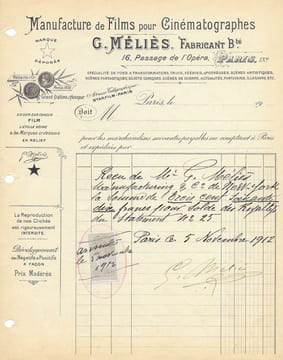 Manufacture de Films pour Cinématographes
G. MÉLIÈS, FABRICANT Bté
16, Passage de l'Opéra, PARIS
MARQUE
DÉPOSÉE
SPÉCIALITÉ DE VUES A TRANSFORMATIONS, TRUCS, FÉERIES, APOTHÉOSES, SCÈNES ARTISTIQUES,
SCÈNES FANTASTIQUES, SUJETS COMIQUES, SCÈNES DE GUERRE, ACTUALITÉS, FANTAISIES, ILLUSIONS, ETC.
Grand Diplôme d'honneur
Adresse Télégraphique
STARFILM-PARIS
Paris, le 19
Doit M
EXIGER SUR CHAQUE
FILM
L'ÉTOILE NOIRE
& les Marques ci-dessous
EN RELIEF
pour les marchandises suivantes payables au comptant à Paris
et expédiées par
G. Méliès
Recu de Mr G. Méliès
Manufacturing & Co de New York
la Somme de Trois cent soixante
dix francs pour Solde des Royalties
du Statement No 25
Paris ce 5 Novembre 1912
La Reproduction
de nos Clichés
est rigoureusement
INTERDITE
5 novembre
1912
G. Méliès
Développement
des Négatifs & Positifs
A FAÇON
Prix Modérés